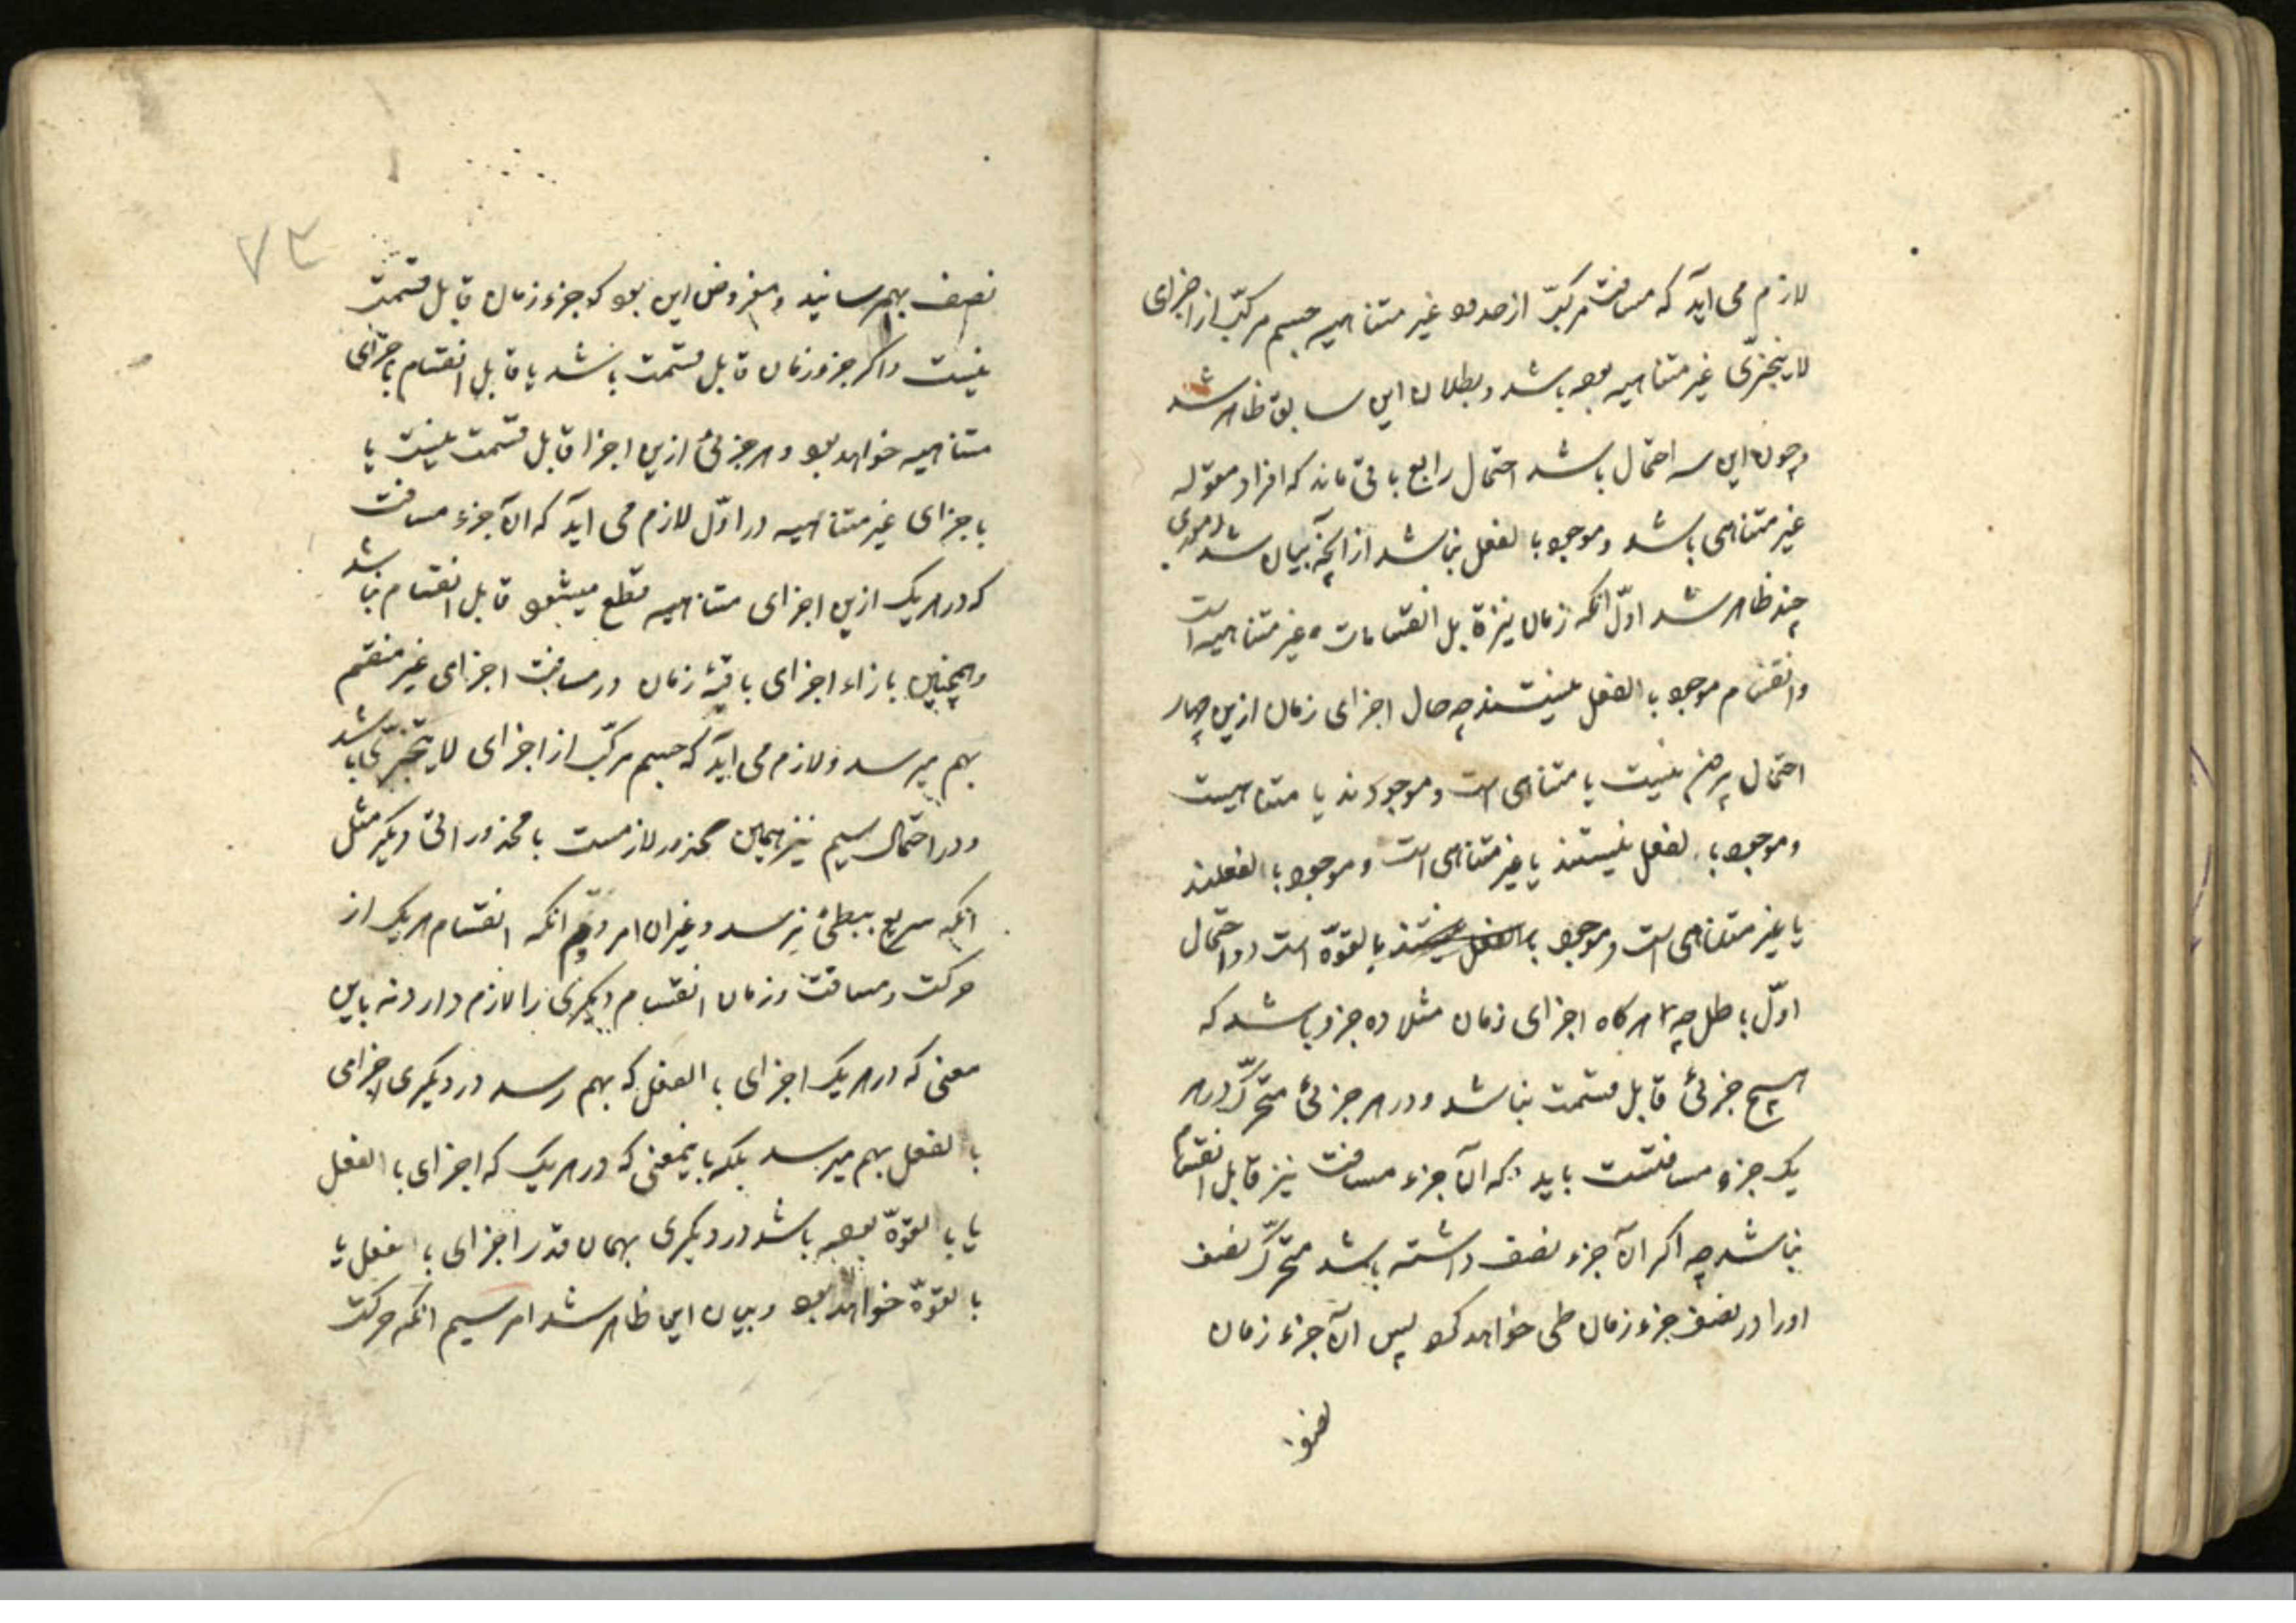 لازم می آید که مسافت مرکبّ از حدود غیر متناهیه جسم مرکبّ از اجزای
لا یتجزّی غیر متناهیه بوده باشد و بطلان این سابق ظاهر شد
و چون این سه احتمال باشد احتمال رابع باقی ماند که افراد مقوله
غیر متناهی باشد و موجود بالفعل نباشد از آنچه بیان شد
چند ظاهر شد اوّل انکه زمان نیز قابل انقسامات غیر متناهیه است
و انقسام موجود بالفعل نیستند چه حال اجزای زمان ازین چهار
احتمال بیرون نیست یا متناهی است و موجودند یا متناهیست
و موجود بالفعل نیستند یا غیر متناهی است و موجود بالفعلند
یا غیر متناهی است و موجود بالفعل نیستند بالقوّه است و احتمال
اوّل باطل چه هر کاه اجزای زمان مثلا ده جزو باشد که
هیچ جزئی قابل قسمت نباشد و در هر جزئی متحرّک در
یک جزو مسافتست باید که آن جزء مسافت نیز قابل انقسام
نباشد چه اکر آن جزء نصف داشته باشد متحرّک نصف
اورا در نصف جزء زمان طی خواهد کرد پس آن جزء زمان
نصف
۷۳
نصف بهم رسانید و مفروض این بود که جزو زمان قابل قسمت
نیست و اکر جزو زمان قابل قسمت باشد یا قابل انقسام باجزای
متناهیه خواهد بود و هر جزئی ازین اجزا قابل قسمت نیست یا
باجزای غیر متناهیه در اوّل لازم می آید که آن جزء مسافت
که در هر یک ازین اجزای متناهیه قطع میشود قابل انقسام نباشد
و همچنین بازاء اجزای باقیهٔ زمان در مسافت اجزای غیر منقسم
بهم میرسد و لازم می آید که جسم مرکبّ از اجزای لا یتجزّی باشد
و در احتمال سیم نیز همین محذور لازمست با محذوراتی دیکر مثل
انکه سریع ببطئ نرسد و غیر ان امر دویّم انکه انقسام هر یک از
حرکت و مسافت و زمان انقسام دیکری را لازم دارد نه باین
معنی که در هر یک اجزای بالفعل که بهم رسد در دیکری اجزای
بالفعل بهم میرسد بلکه باینمعنی که در هر یک که اجزای بالفعل
یا بالقوّه بوده باشد در دیکری بهمان قدر اجزای بالفعل یا
بالقوّه خواهد بود و بیان این ظاهر شد امر سیم انکه حرکت